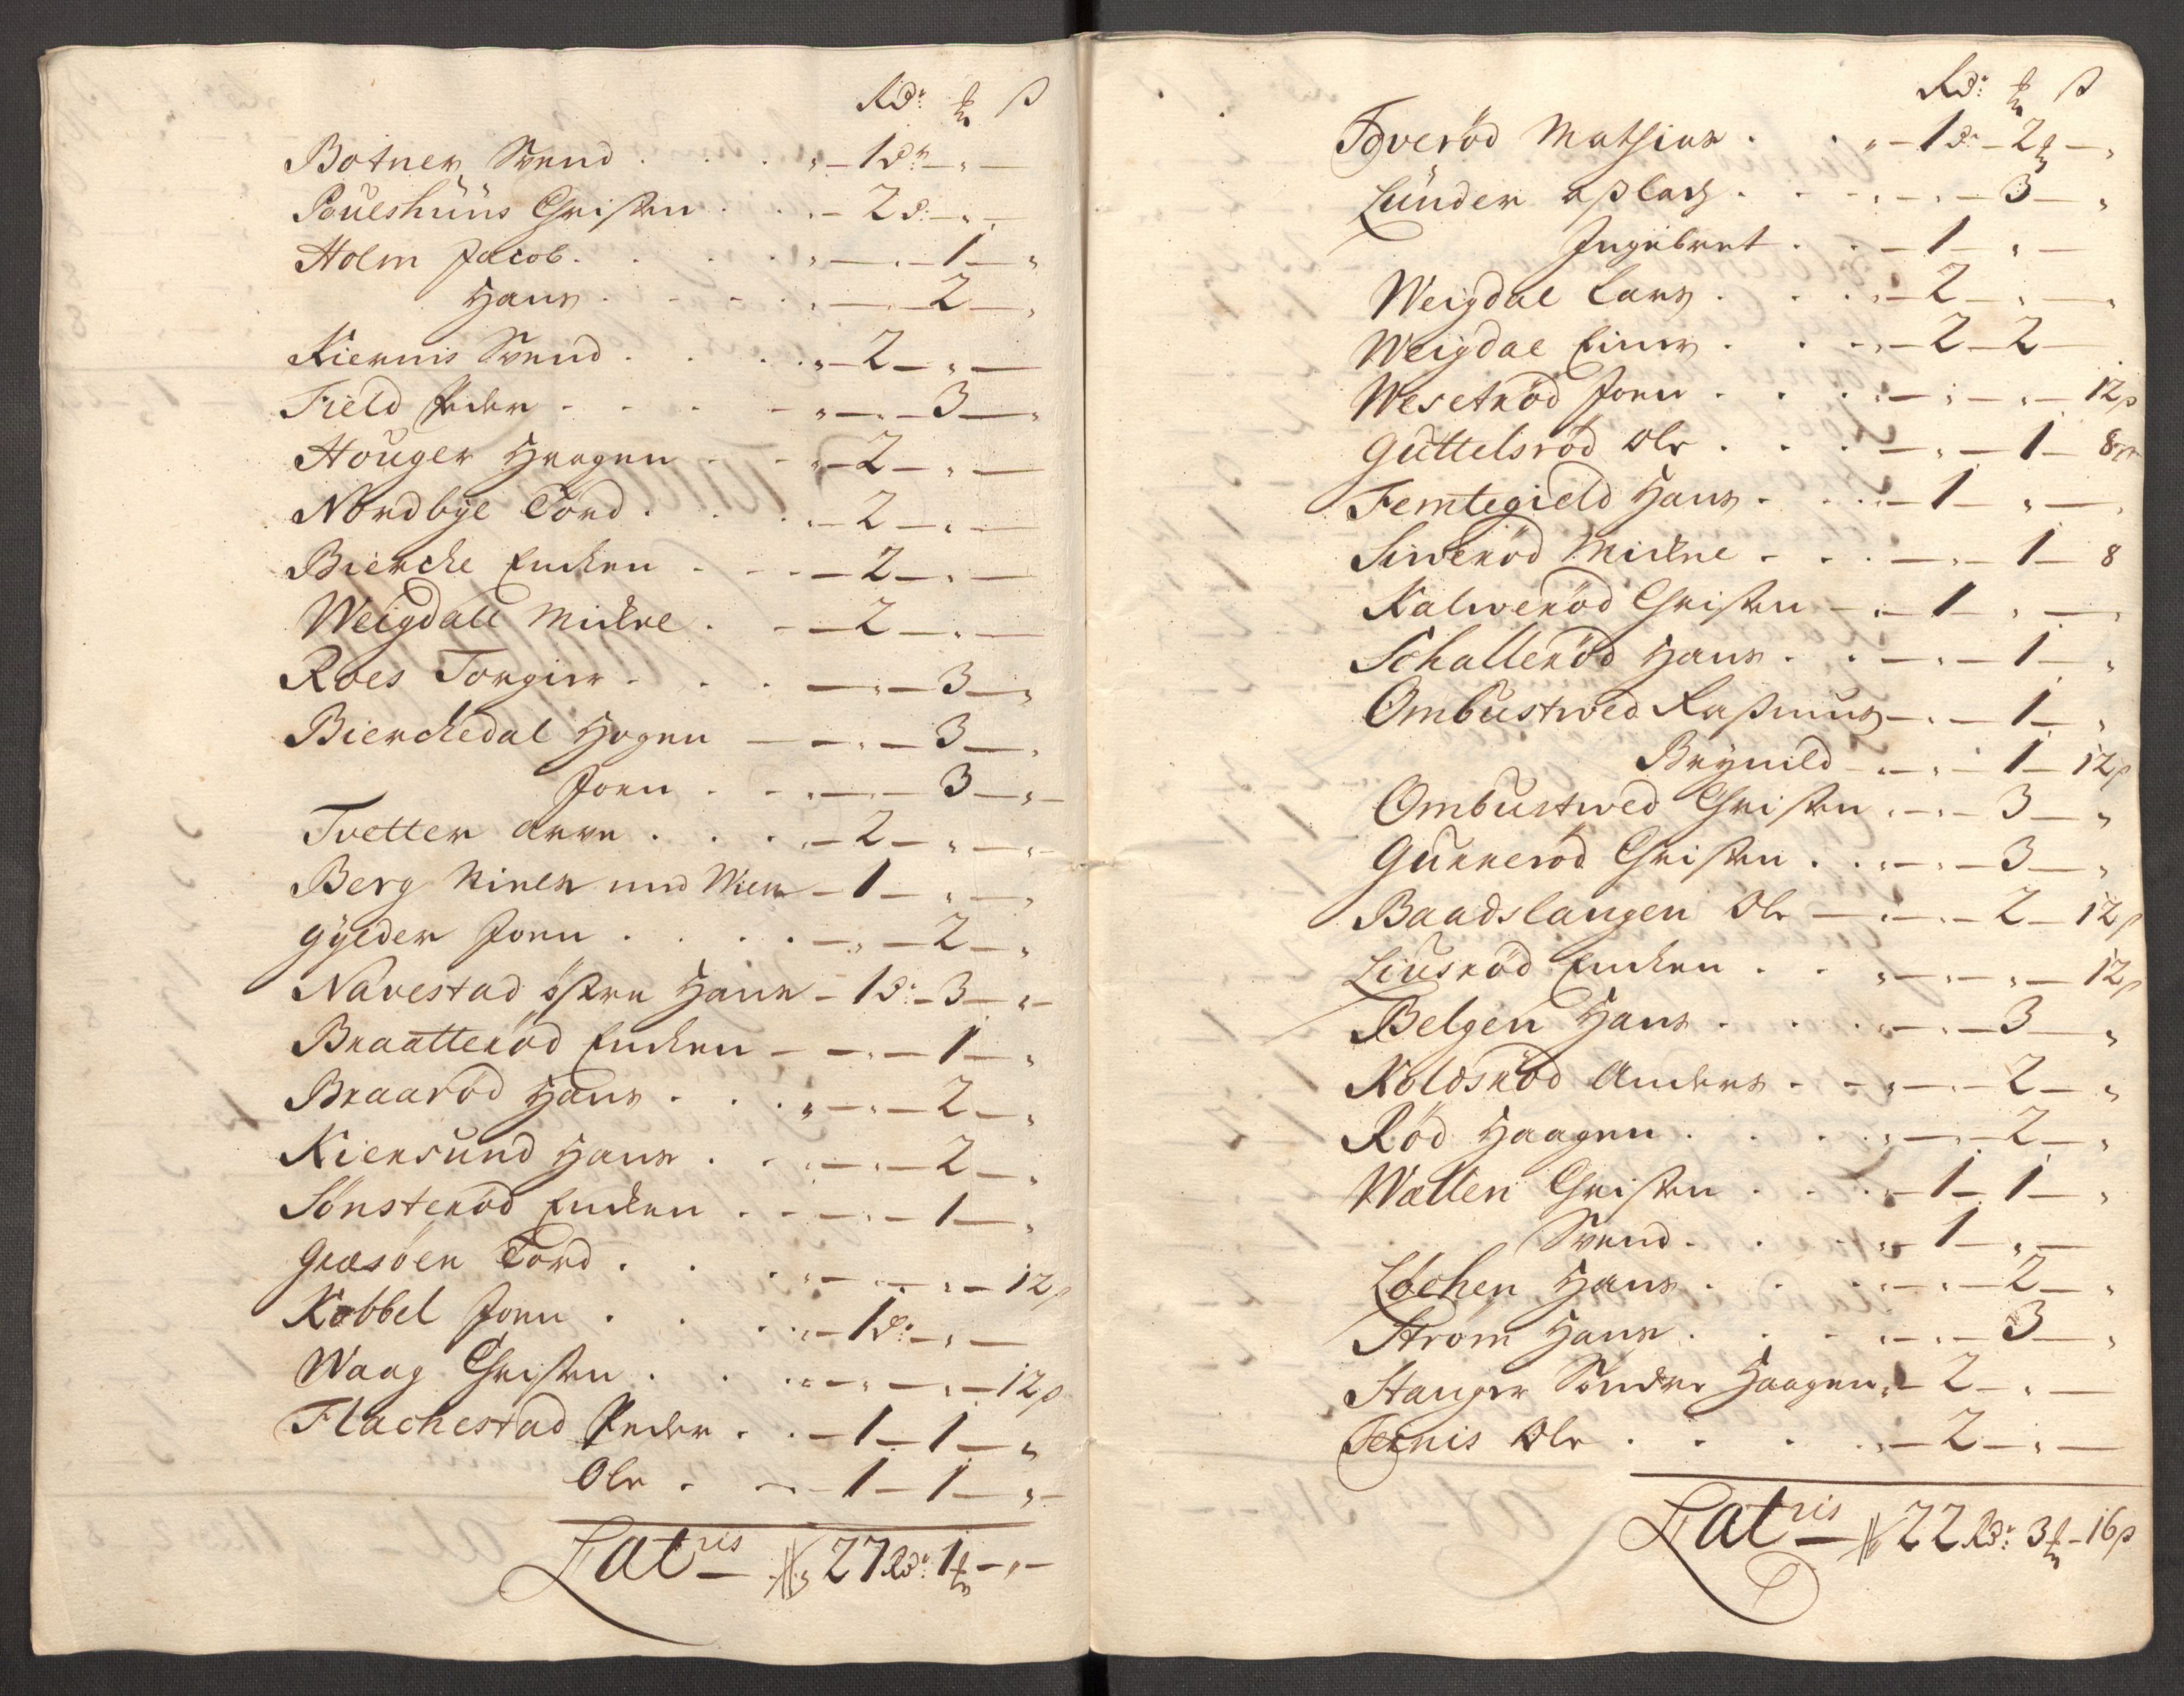 Rdr ß
Botner Svend . . . „ — 1 dr — „ —
Poueshuus Christen . . . — 2 dr — „ —
Holm Jacob . . . . „ — „ — 1 — „
Hans . . . . — „ — 2 — „
Kiernis Svend . . . „ — 2 — „ —
Field Peder . . . . „ — „ — 3 — „
Houger Haagen . . „ — 2 — „ —
Nordbye Tord . . . „ — 2 — „ —
Bierche Encken . . . — 2 — „ —
Weigdall Mickel . . — 2 — „ —
Roes Torgier . . . — „ — 3 — „
Bierchedal Hogen — — „ — 3 — „
Joen . . „ — „ — 3 — „ —
Tvetter Arne . . . „ — 2 — „ —
Berg Niels — 1 — „ —
Gylder Joen . . . . — „ — 2 — „
Navestad östre Hans — 1 dr — 3 — „ —
Braatteröd Encken — — „ — 1 — „
Braaröd Hans . . . „ — „ — 2 — „
Kiersund Hans . . „ — „ — 2 — „
Sönsteröd Encken . . — „ — 1 — „
Græsöen Tord . . . „ — „ — „ — 12 ß
Kobbel Joen . . . „ — 1 dr — „ —
Waag Christen . . . „ — „ — „ — 12 ß
Flachestad Peder . . — 1 — 1 — „
Ole . . — 1 — 1 — „ —
Latris — 27 Rdr 1 — „ —
Rdr ß
Toveröd Mathias . . „ — 1 dr — 2 — „
Lunder Aslach . . . „ — „ — 3 — „
Ingebret . . — 1 — „ —
Weigdal Lars . . . „ — 2 — „ — „
Weigdal Einer . . . „ — 2 — 2 —
Wesetröd Joen . . . „ — „ — „ — 12 ß
Guttelsröd Ole . . . — „ — 1 — 8 ß
Femtegield Hans . . . — 1 — „ — „
Siweröd Mickel . . . — „ — 1 — 8
Kalweröd Christen — „ — 1 — „ — „
Schalleröd Hans . . . — „ — 1 — „
Ombustwed Rasmus — „ — 1 — „
Brynild — „ — „ — 1 — 12 ß
Ombustwed Christen „ — „ — 3 — „
Gunneröd Christen . . „ — „ — 3 — „
Baadslangen Ole — „ — „ — 2 — 12 ß
Liusröd Encken . . „ — „ — „ — 12 ß
Belgen Hans . . . „ — „ — 3 — „
Koldsröd Anders . . „ — „ — 2 — „
Röd Haagen . . . . „ — „ — 2 — „
Wallen Christen . . . „ — 1 — 1 — „
Svend . . . „ — 1 — „ —
Löchen Hans . . . . „ — „ — 2 — „
Ström Hans . . . . „ — „ — 3 — „
Stanger Söndre Haagen „ — 2 — „ —
Ternis Ole . . . . „ — 2 — „ —
Latris — 22 Rdr 3 — 16 ß